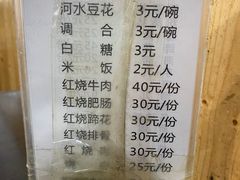 河水豆花 3元/碗
调合 3元/碗
白糖 3元
米饭 2元/人
红烧牛肉 40元/份
红烧肥肠 30元/份
红烧蹄花 30元/份
红烧排骨 30元/份
红烧 30元/份
25元/份